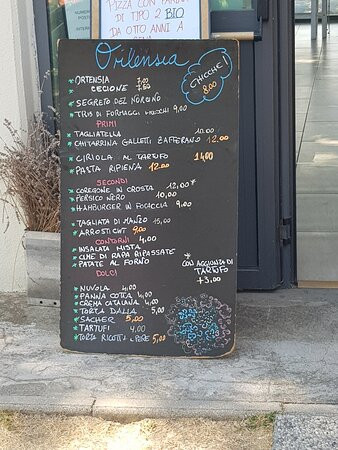 PIZZA CON FARINA
DI TIPO 2 BIO
DA OTTO ANNI A
Ortensia
CHICCHE!
8,00
ORTENSIA 7,00
CECIONE 7,50
SEGRETO DEL NORCINO
TRIS DI FORMAGGI 9,00
PRIMI
TAGLIATELLA 10,00
CHITARRINA GALLETTI ZAFFERANO 12.00
CIRIOLA AL TARTUFO 1400
PASTA RIPIENA 12.00
SECONDI
COREGONE IN CROSTA 12,00*
PERSICO NERO 10,00
HAMBURGER IN FOCACCIA 9,00
TAGLIATA DI MANZO 15,00
ARROSTICINI 9,00
CONTORNI 4,00
INSALATA MISTA
CIME DI RAPA RIPASSATE
PATATE AL FORNO
* CON AGGIUNTA DI
TARTUFO
+3,00
DOLCI
NUVOLA 4,00
PANNA COTTA 4,00
CREMA CATALANA 4,00
TORTA DALLA 5,00
SACHER 5,00
TARTUFI 4,00
TORTA RICOTTA e PERE 5,00